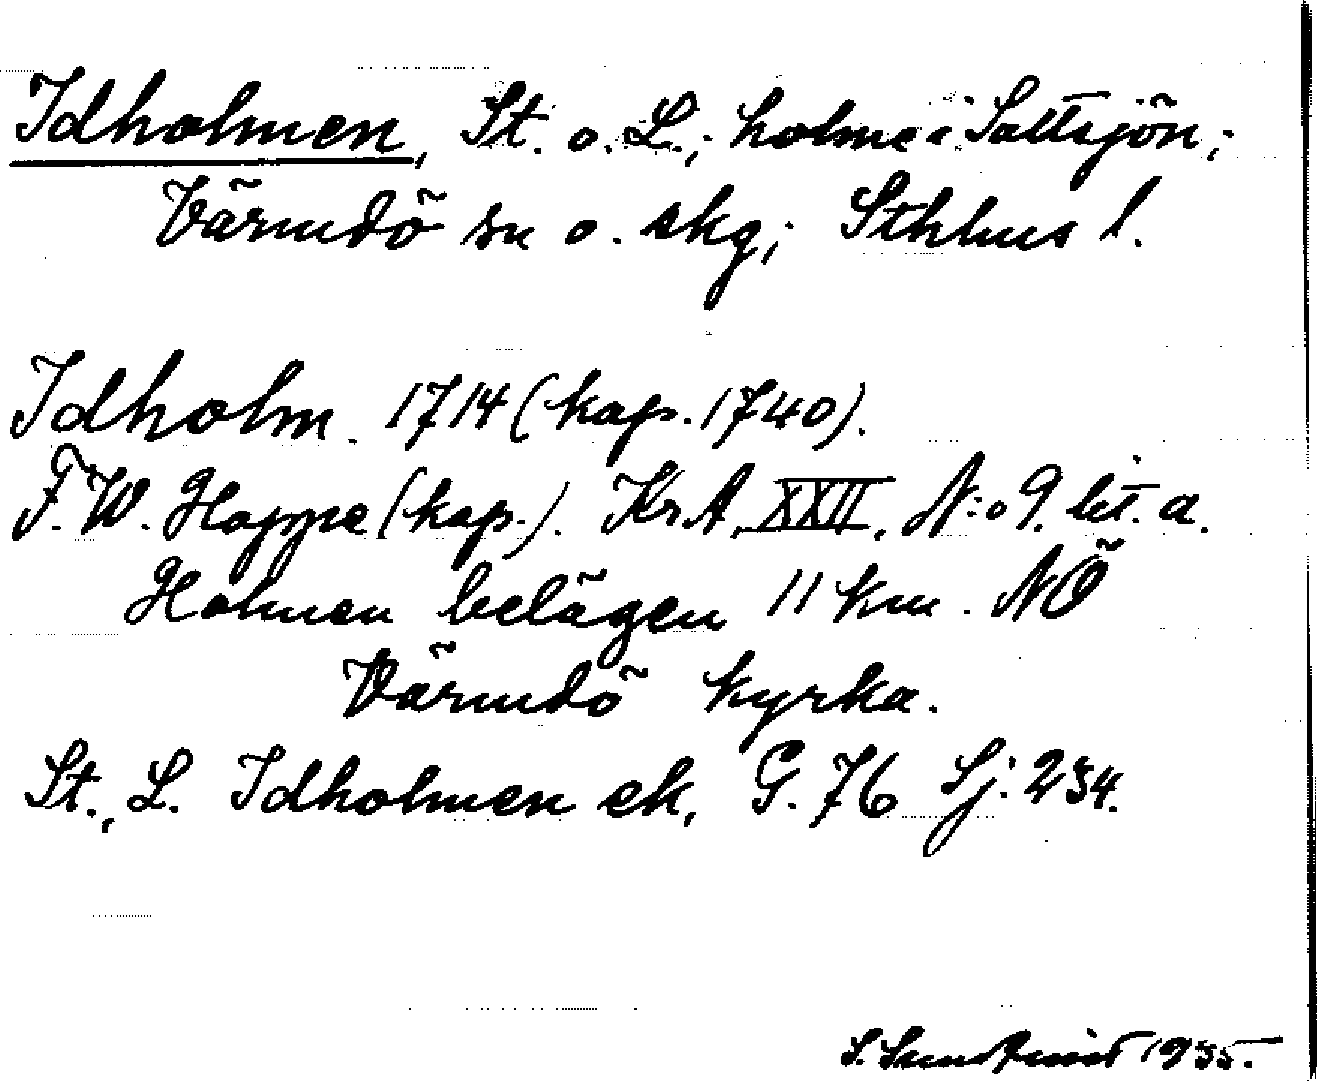 Idholmen, St. o. L.; holme i Saltsjön;
Värmdö sn o. skg; Sthlms l.
Idholm. 1714 (kap. 1740).
F. W. Hoppe (kap.). KrA, XXII, N:o 9. lit. a.
Holmen belägen 11 km. NÖ
Värmdö kyrka.
St., L. Idholmen ek, G. 76 Sj: 234.
S. 1935.